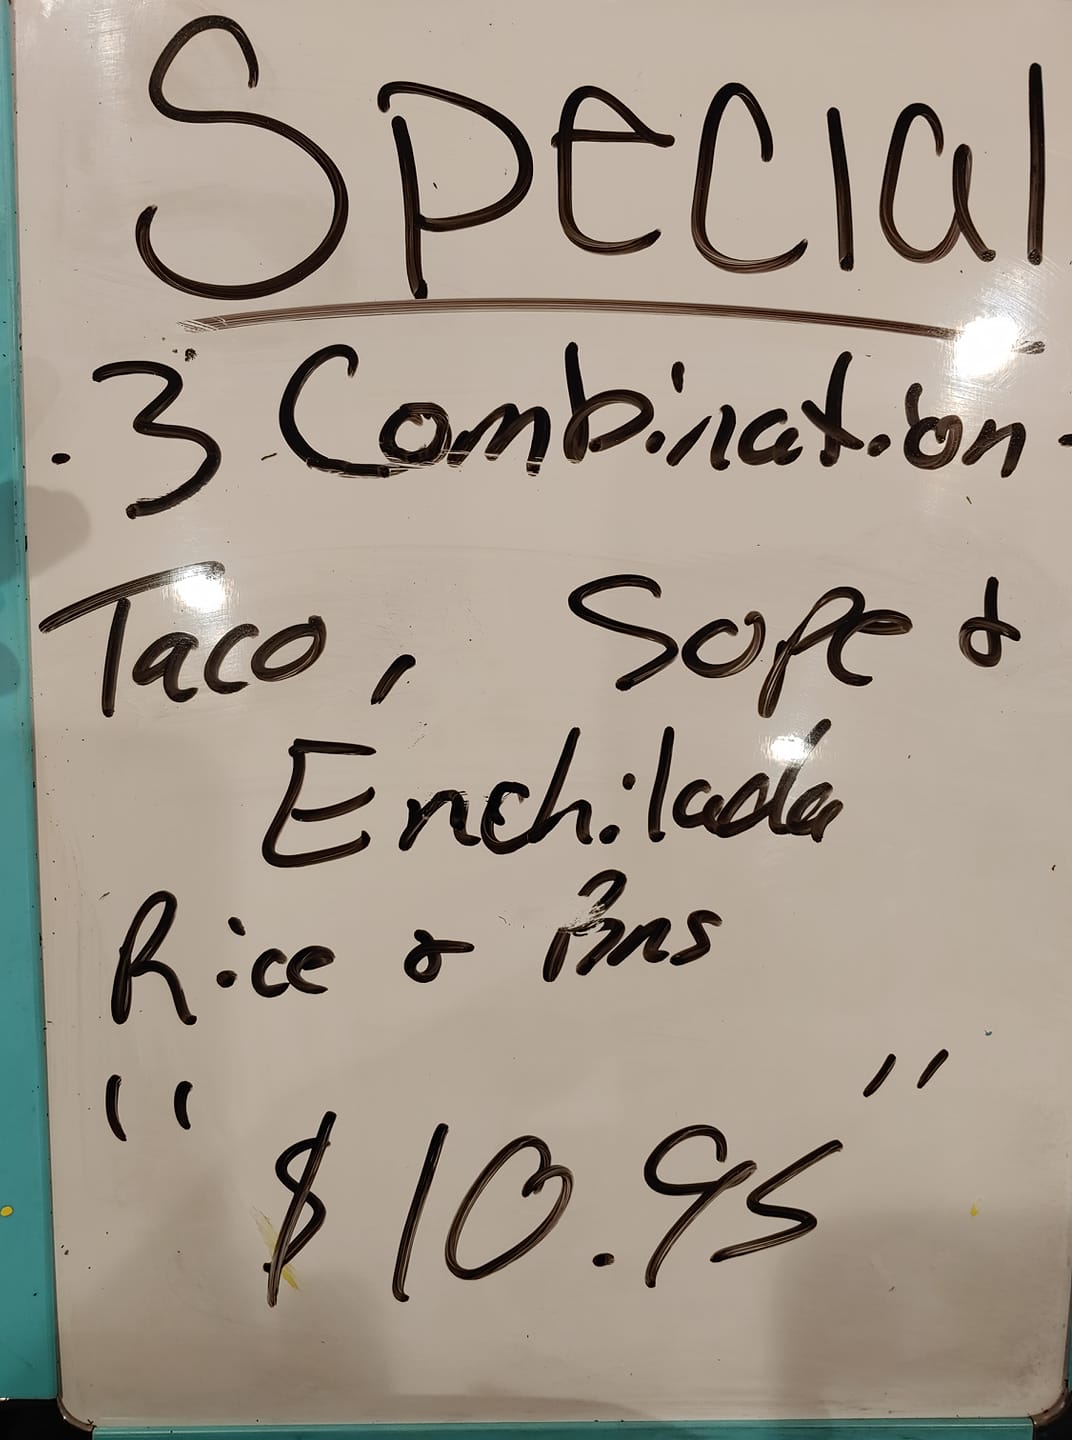 Special
. 3 Combination -
Taco, Sope &
Enchilada
Rice & Bns
"$10.95"